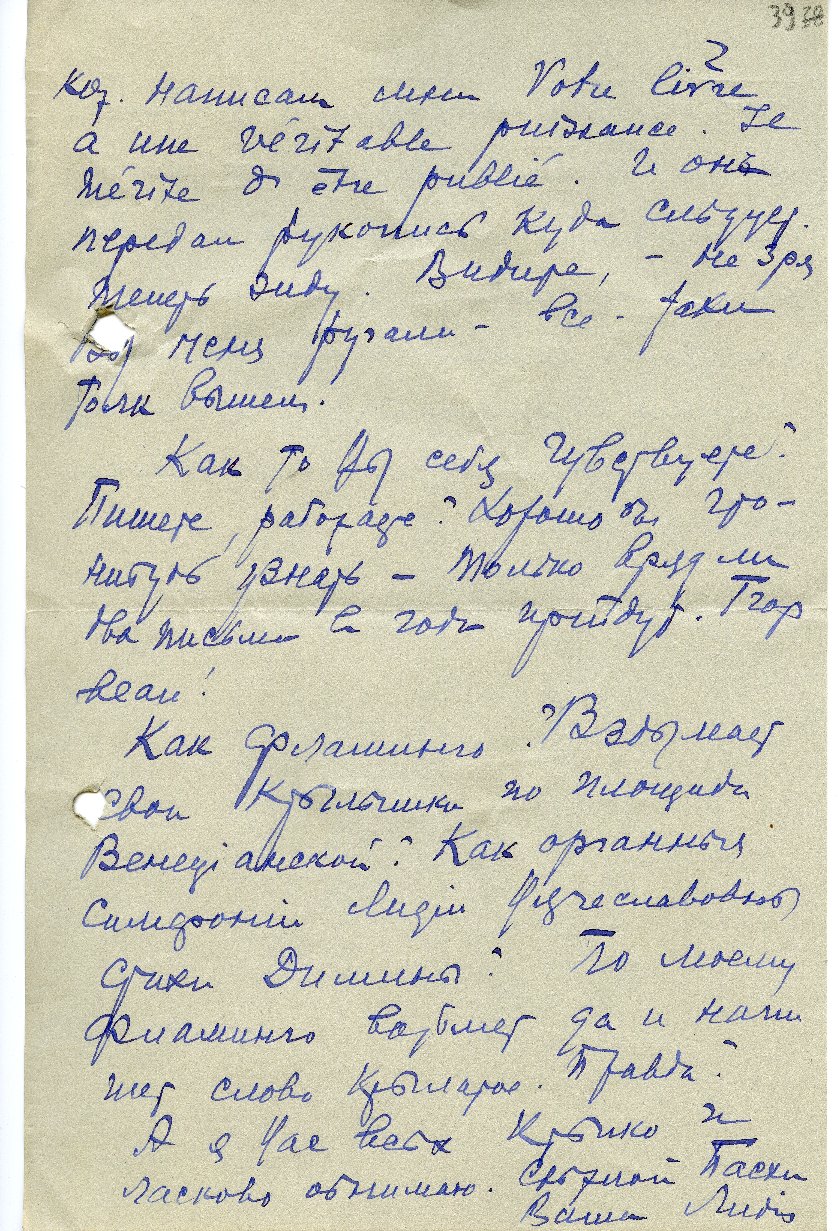 39 38
2
написал мне Votre livre
a une véritable puissance. Je
mérite d'être publié. И онъ
передал рукопись куда слѣдует.
Теперь жду. Видите, – не зря
Вы меня ругали – все-таки
толк вышел.
Как то Вы себя чувствуете?
Пишете, работаете? Хорошо бы что-
нибудь узнать – только вряд ли
два письма в год придут.
Как Фламинго? Вздымает
свои крылышки по площади
Венеціанской? Как органныя
симфоніи Лидіи Вячеславовны
стихи Димины? По моему
Фламинго возьмет да и начи
нет слово крылатое. Правда?
А я Вас всѣх крѣпко и
ласково обнимаю. Свѣтлой Пасхи
Ваша Лидія